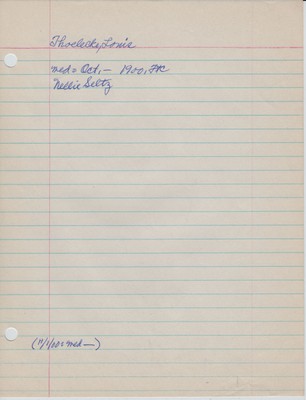 Thoelecke, Louis
med = Oct. — 1900, FK
Nellie Seltz
(11/1/00: med —)